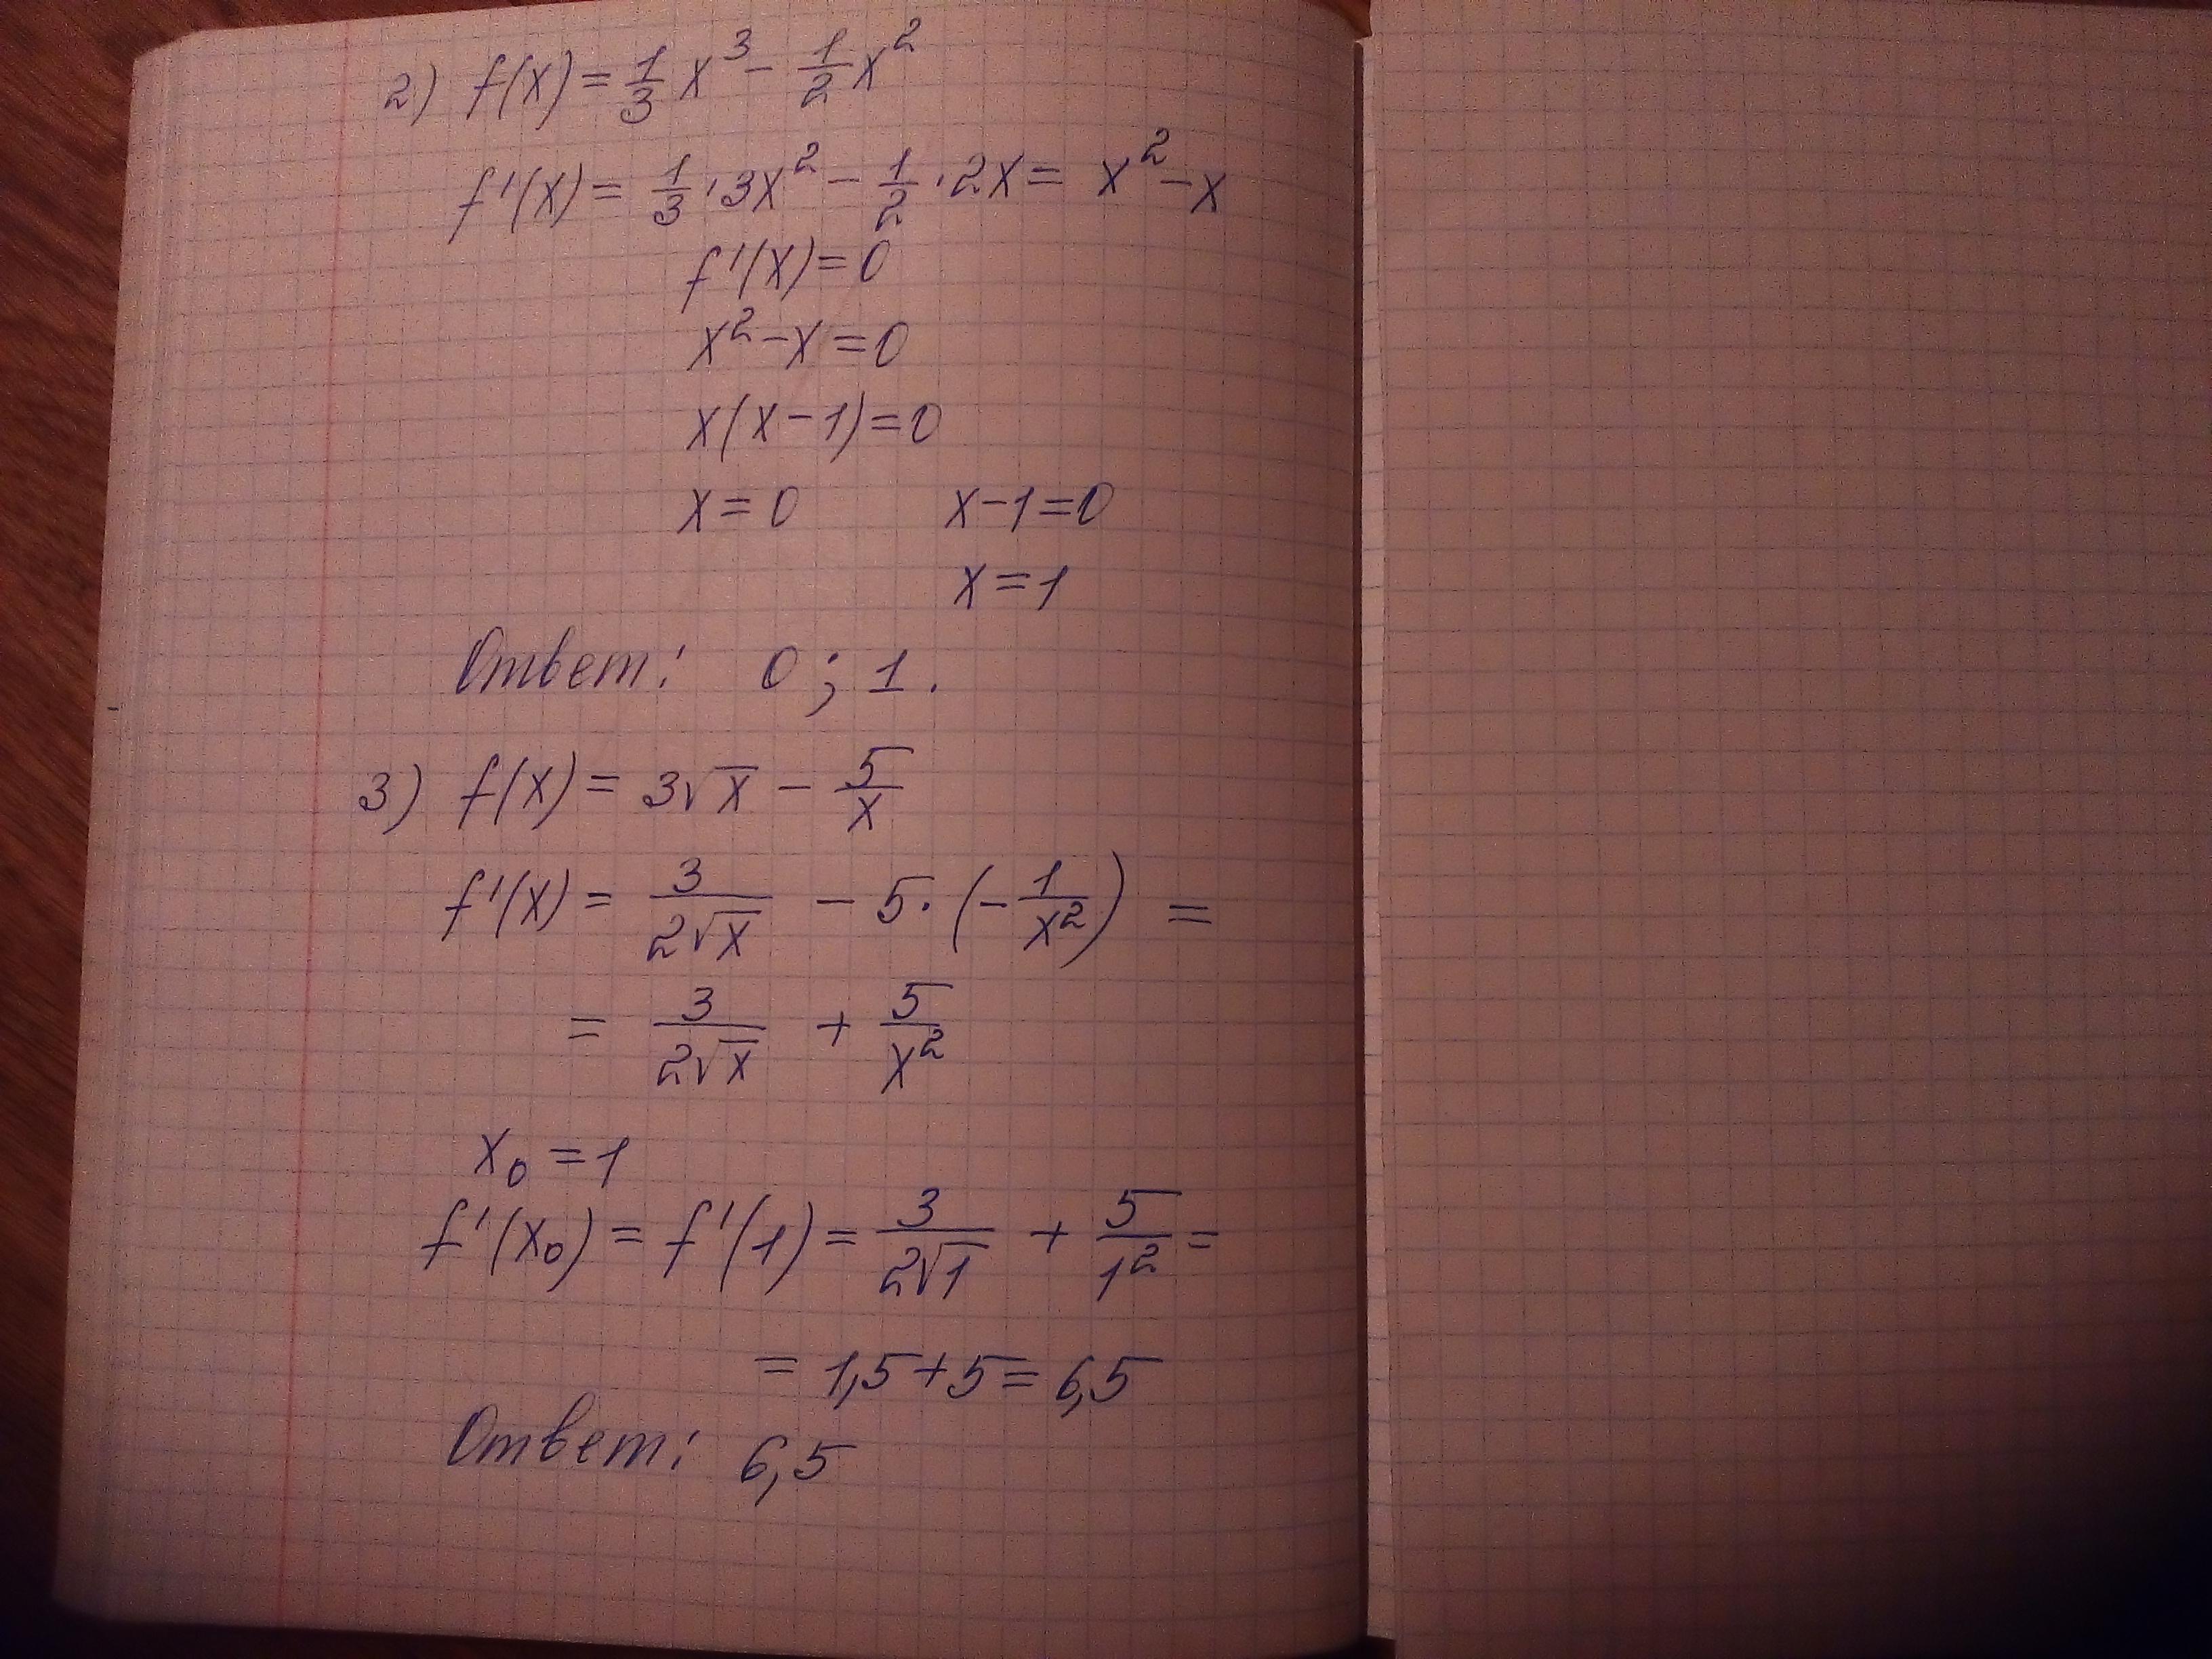 2) f(x) = 1/3 x³ - 1/2 x²
f'(x) = 1/3 · 3x² - 1/2 · 2x = x² - x
f'(x) = 0
x² - x = 0
x(x - 1) = 0
x = 0 x - 1 = 0
x = 1
Ответ: 0; 1.
3) f(x) = 3√x - 5/x
f'(x) = 3/(2√x) - 5 · (- 1/x²) =
= 3/(2√x) + 5/x²
x₀ = 1
f'(x₀) = f'(1) = 3/(2√1) + 5/1² =
= 1,5 + 5 = 6,5
Ответ: 6,5